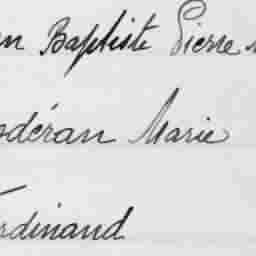 n Baptiste Pierre
odéran Marie
rdinand